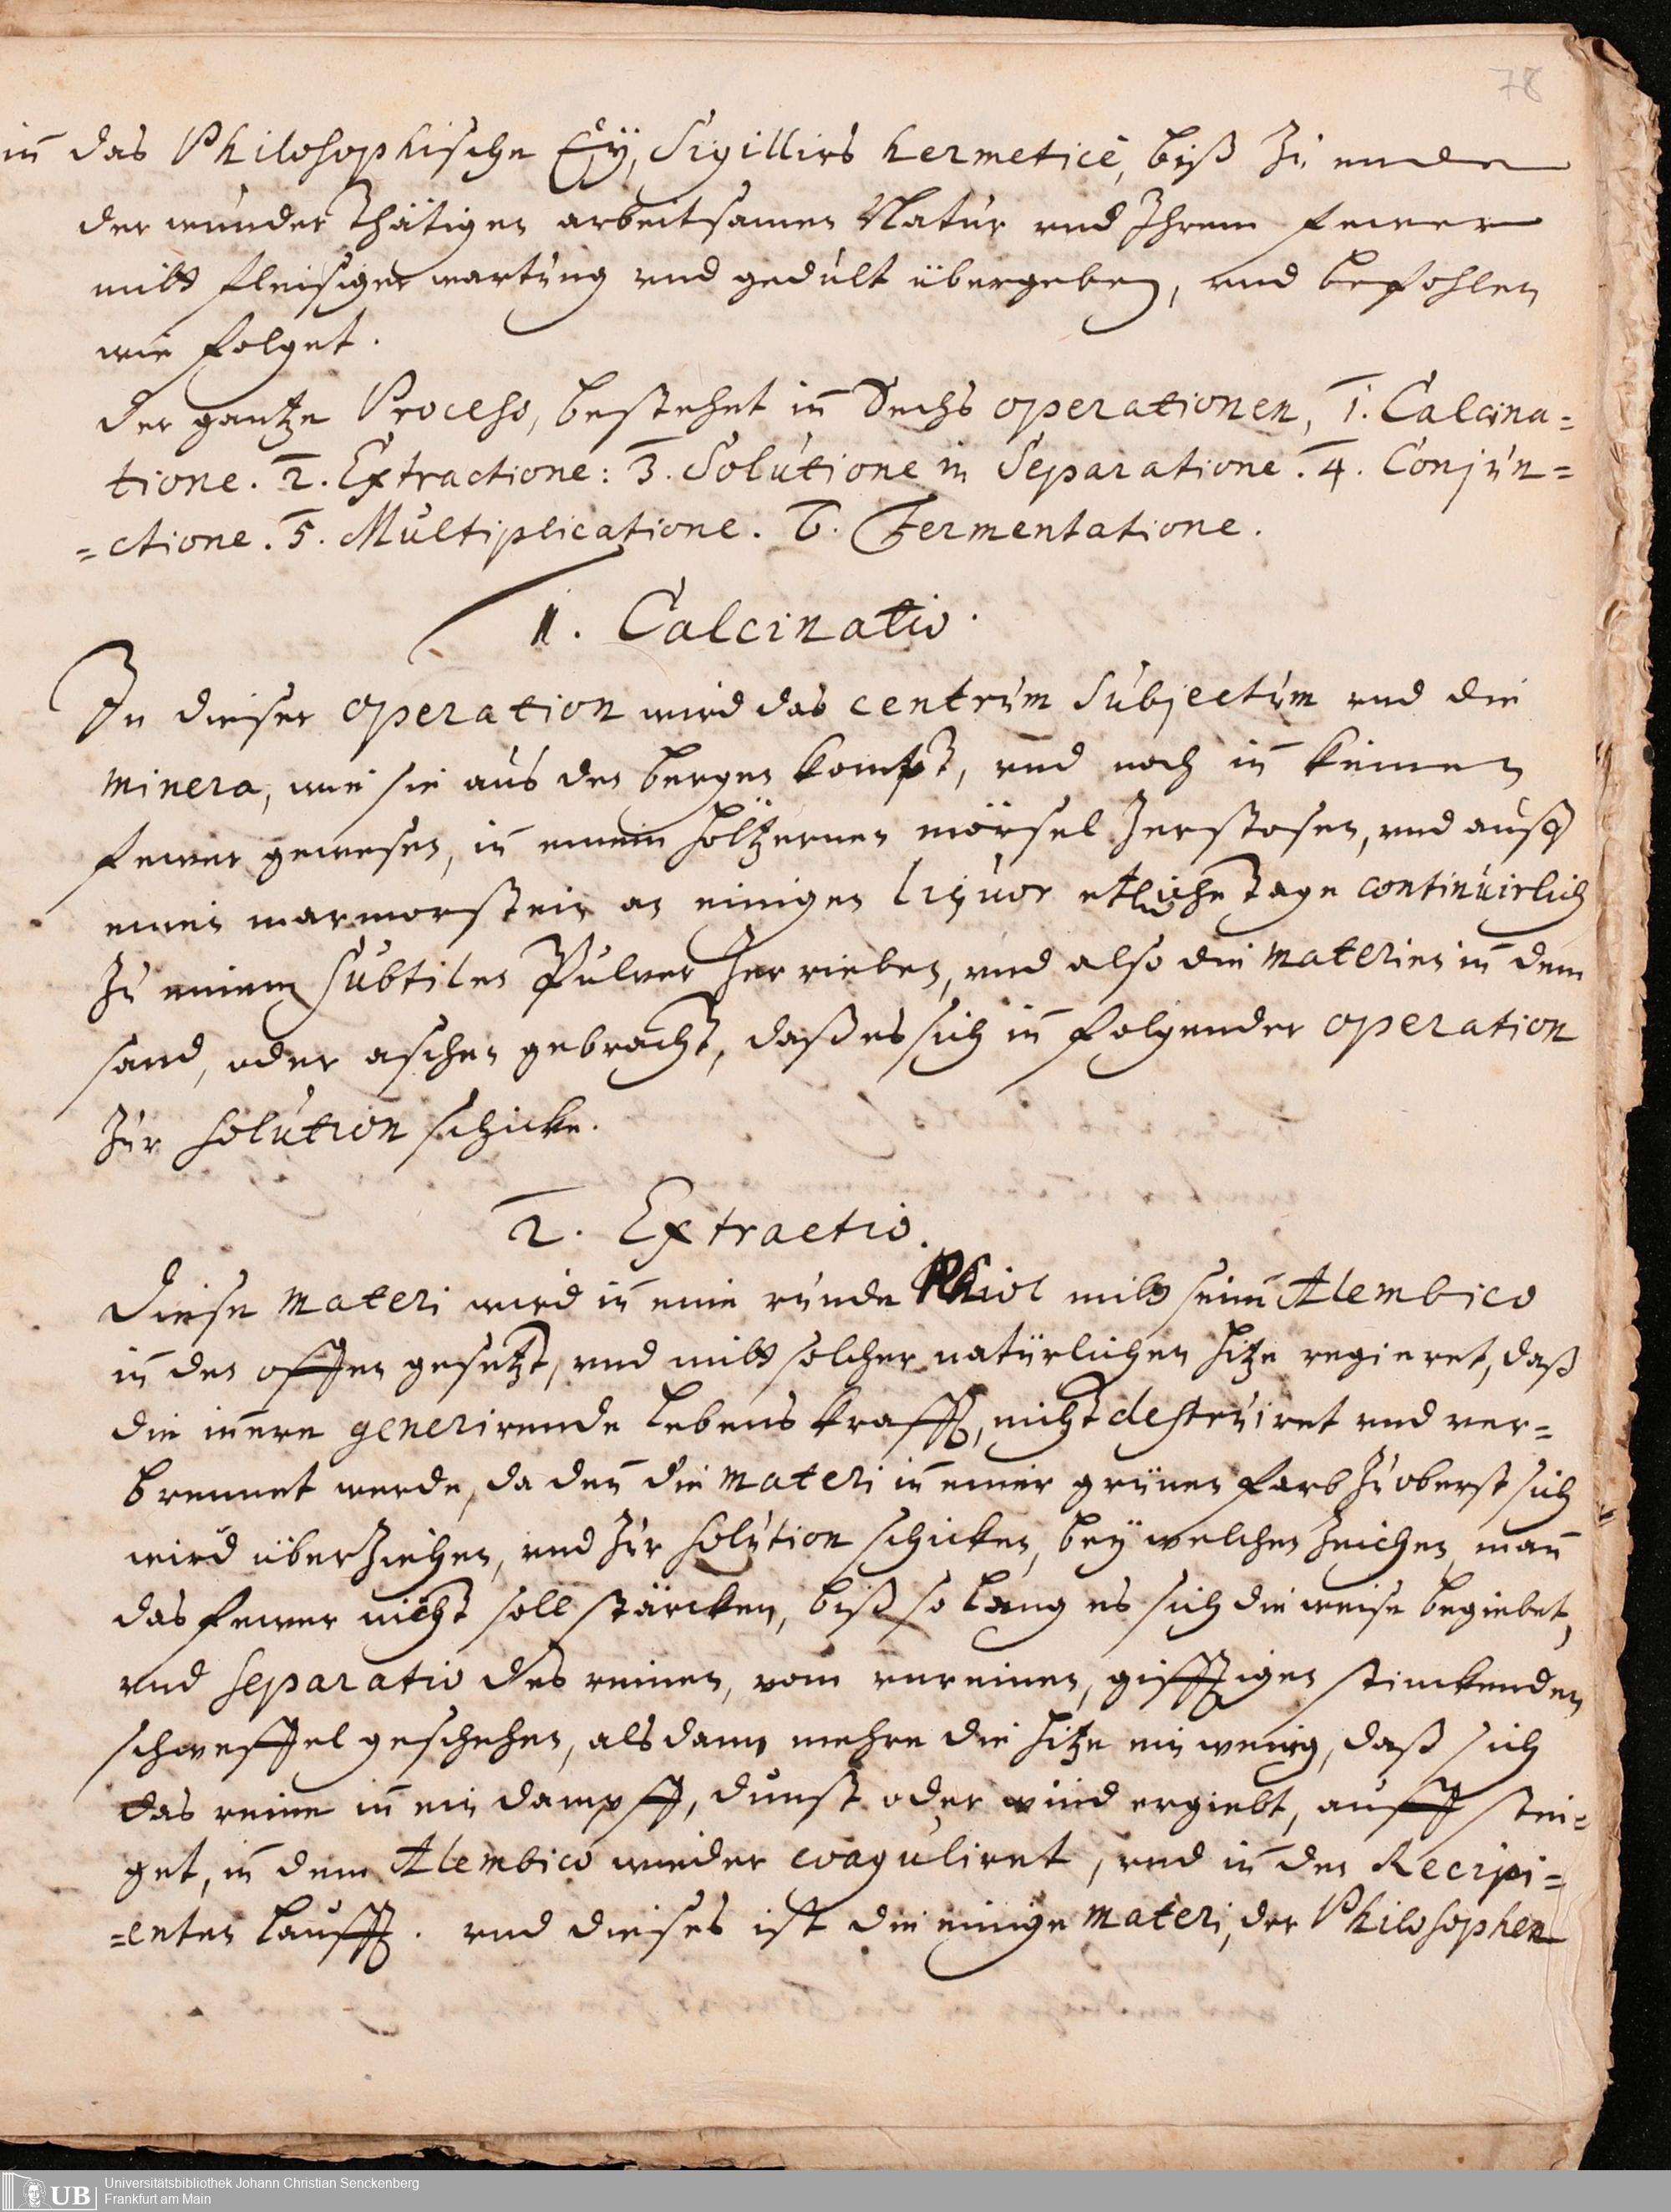 78
in̄ das Philosophische Eÿ, Sigillirs hermeticè, biß zu ende
der wunder Thätigen arbeitsamen Natur vnd Ihrem fewer
mitt fleisiger wartung vnd gedult übergeben, vnd befohlen
wie folget.
Der gantze Process, bestehet in̄ Sechs operationen, 1. Calcina=
tione. 2. Extractione: 3. Solutione in Separatione. 4. Conjun=
=ctione. 5. Multiplicatione. 6. Fermentatione.
1. Calcinatio.
In dieser operation wird das centrum Subjectum vnd die
minera, wie sie aus den bergen kompt, vnd noch in̄ keinen
fewer gewesen, in̄ einem höltzernen mörsel zerstosen, vnd auff
einen marmorstein an einigen liquor etliche tage continuirlich
zu einem subtilen Pulver zerrieben, vnd also die materien in̄ dem
sand, oder aschen gebracht, daß es sich in̄ folgender operation
zur solution schicke.
2. Extractio.
Diese materi wird in̄ eine runde Phiol mitt seinē Alembico
in̄ den offen gesetzt, vnd mitt solcher natürlichen hitze regieret, daß
die in̄ere generirende lebens krafft, nicht destruiret vnd ver=
brennet werde, da den̄ die materi in̄ einer grünen farb zu oberst sich
wird überziehen, vnd zur solution schicken, beÿ welchen zeichen man̄
das fewer nicht soll stärcken, biß so lang es sich die weise begiebet,
vnd separatio des reinen, vom vnreinen, gifftigen stinckenden
schweffel geschehen, als dann mehre die hitze ein wenig, daß sich
das reine in̄ ein dampff, dunst oder wind ergiebt, auff stei=
get, in̄ dem Alembico wieder coaguliret, vnd in̄ den Recipi=
=enten laufft. vnd dieses ist die einige materi, der Philosophen
UB
Universitätsbibliothek Johann Christian Senckenberg
Frankfurt am Main